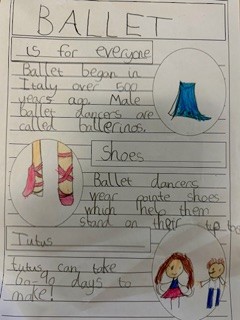 BALLET
is for everyone
Ballet began in
Italy over 500
years ago. Male
ballet dancers are
called ballerinos.
Shoes
Ballet dancers
wear pointe shoes
which help them
stand on their tip toe
Tutus
tutus can take
60-90 days to
make!